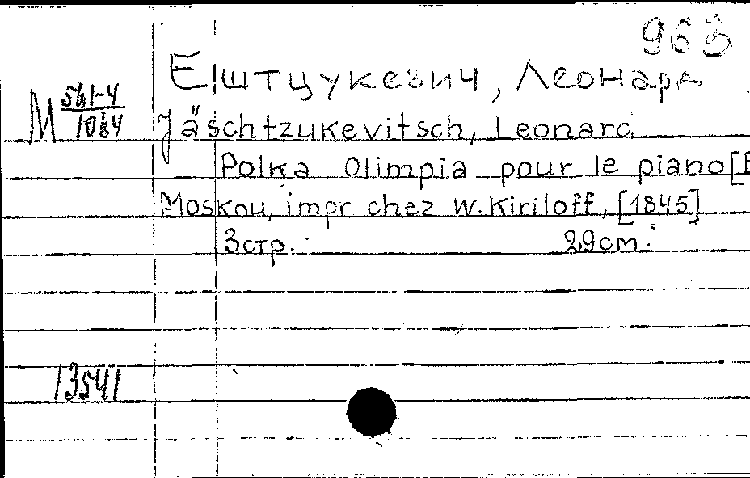 963
Ештцукевич, Леонард
М 561-4/1064
Jäschtzukevitsch, Leonard
Polka Olimpia pour le piano [E
Moskou, impr chez W. Kiriloff, [1845]
3 стр. 29 cm.
13541